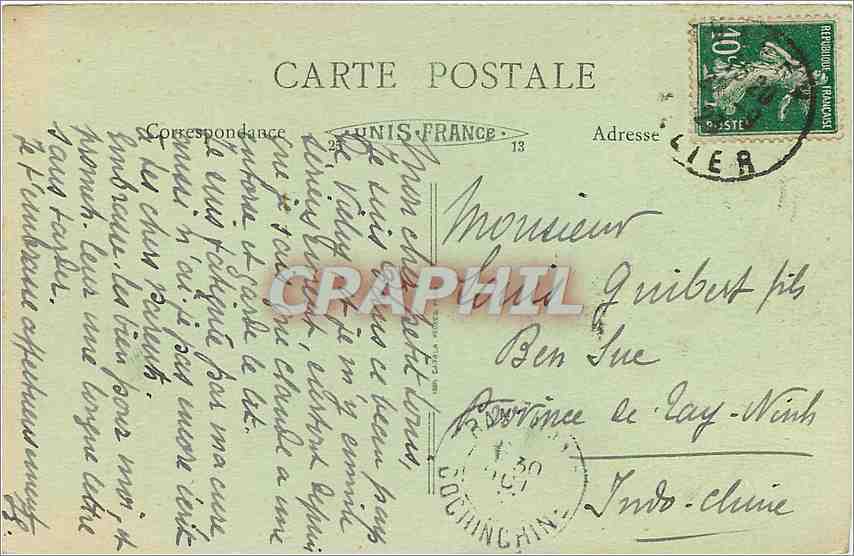 CARTE POSTALE
Correspondance
UNIS-FRANCE
25 13
Adresse
10c
REPUBLIQUE FRANÇAISE
POSTES
LIER
Mon cher petit Louis,
Je suis dans ce beau pays
de Vichy et je m'y ennuie
sérieusement, surtout depuis
que je sais que Claude a une
entorse et garde le lit.
Je suis fatiguée par ma cure
aussi n'ai-je pas encore écrit
à tes chers parents.
Embrasse-les bien pour moi, et
promets-leur une longue lettre
sans tarder.
Je t'embrasse affectueusement
Monsieur
Louis Guibert fils
Ben Suc
Province de Tay-Ninh
Indo-chine
30
COCHINCHINE
CRAPHIL